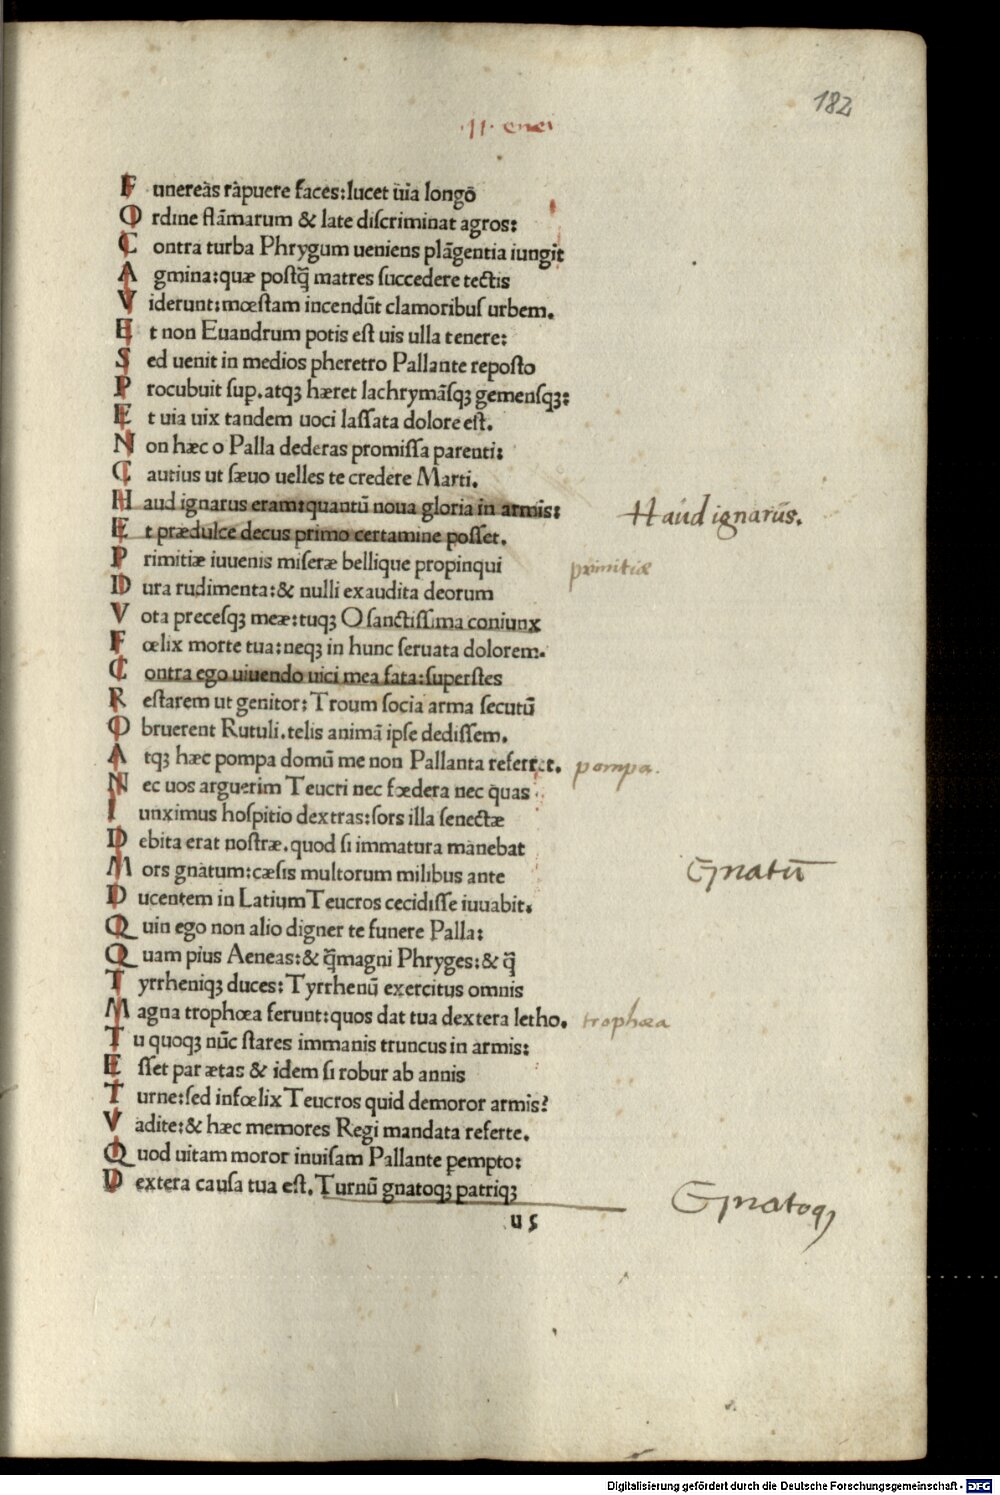 182
·11· enei
F unereas rapuere faces: lucet uia longo
O rdine flāmarum & late discriminat agros:
C ontra turba Phrygum ueniens plāgentia iungit
A gmina: quæ postq̄ matres succedere tectis
V iderunt: mœstam incendūt clamoribus urbem.
E t non Euandrum potis est uis ulla tenere:
S ed uenit in medios pheretro Pallante reposto
P rocubuit sup. atqꝫ hæret lachrymāsqꝫ gemensqꝫ:
E t uia uix tandem uoci lassata dolore est.
N on hæc o Palla dederas promissa parenti:
C autius ut sæuo uelles te credere Marti.
H aud ignarus eram: quantū noua gloria in armis: Haud ignarus.
E t prædulce decus primo certamine posset.
P rimitiæ iuuenis miseræ bellique propinqui primitiæ
D ura rudimenta: & nulli exaudita deorum
V ota precesqꝫ meæ: tuqꝫ O sanctissima coniunx
F œlix morte tua: neqꝫ in hunc seruata dolorem.
C ontra ego uiuendo uici mea fata: superstes
R estarem ut genitor: Troum socia arma secutū
O bruerent Rutuli. telis animā ipse dedissem.
A tqꝫ hæc pompa domū me non Pallanta referret. pompa.
N ec uos arguerim Teucri nec fœdera nec quas
I unximus hospitio dextras: sors illa senectæ
D ebita erat nostræ. quod si immatura manebat
M ors gnatum: cæsis multorum milibus ante Gnatū
D ucentem in Latium Teucros cecidisse iuuabit.
Q uin ego non alio digner te funere Palla:
Q uam pius Aeneas: & q̄ magni Phryges: & q̄
T yrrheniqꝫ duces: Tyrrhenū exercitus omnis
M agna trophœa ferunt: quos dat tua dextera letho. trophœa
T u quoqꝫ nūc stares immanis truncus in armis:
E sset par ætas & idem si robur ab annis
T urne: sed infœlix Teucros quid demoror armis?
V adite: & hæc memores Regi mandata referte.
Q uod uitam moror inuisam Pallante pempto:
D extera causa tua est. Turnū gnatoqꝫ patriqꝫ Gnatoqꝫ
u 5
Digitalisierung gefördert durch die Deutsche Forschungsgemeinschaft - DFG